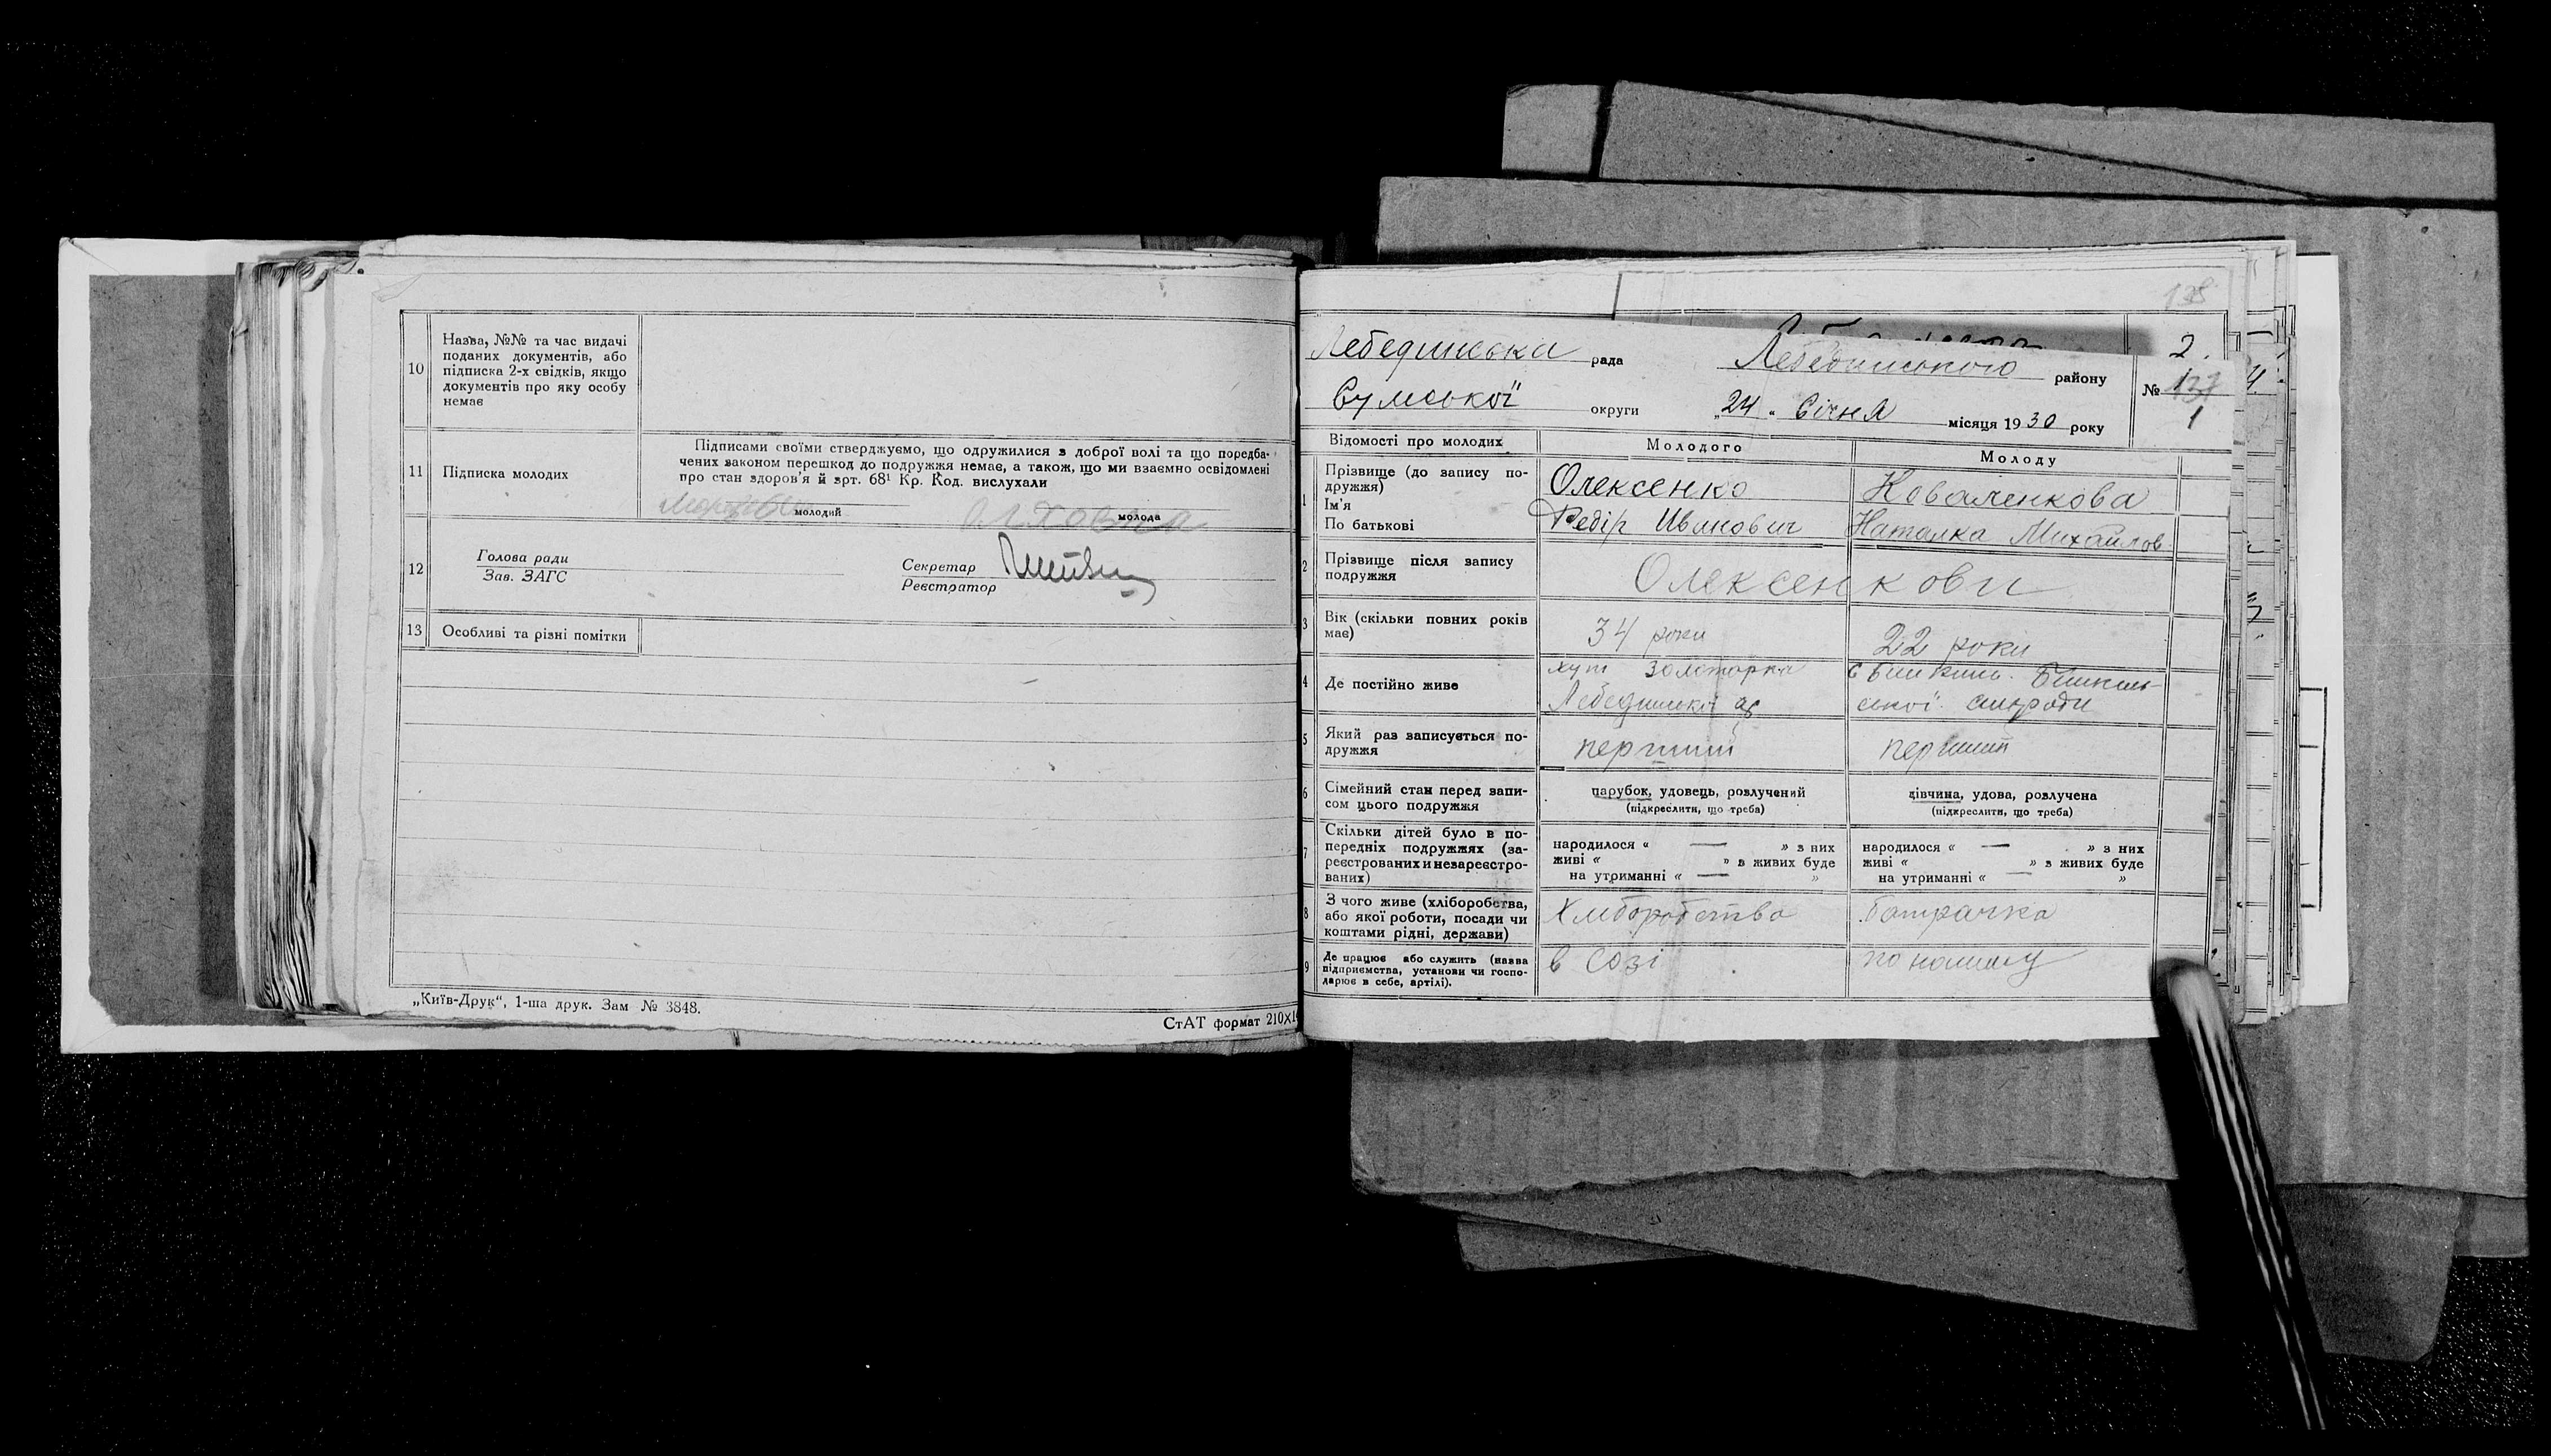 10
Назва, №№ та час видачі
поданих документів, або
підписка 2-х свідків, якщо
документів про яку особу
немає
11
Підписка молодих
Підписами своїми стверджуємо, що одружилися з доброї волі та що поредба-
чених законом перешкод до подружжя немає, а також, що ми взаємно освідомлені
про стан здоров'я й зрт. 68¹ Кр. Код. вислухали
молодий
молода
12
Голова ради
Зав. ЗАГС
Секретар
Реєстратор
13
Особливі та різні помітки
„Київ-Друк“, 1-ша друк. Зам № 3848.
СтАТ формат 210X1
138
Лебединська рада Лебединського району
2.
№ 137
1
Сумської округи „24“ Січня місяця 1930 року
Відомості про молодих
Молодого
Молоду
1
Прізвище (до запису по-
дружжя)
Ім'я
По батькові
Олексенко
Федір Иванович
Коваленкова
Наталка Михайлов
2
Прізвище після запису
подружжя
Олексенкови
3
Вік (скільки повних років
має)
34 роки
22 роки
4
Де постійно живе
хут Золотарка
Лебединської
с Бишкинь
5
Який раз записується по-
дружжя
перший
перший
6
Сімейний стан перед запи-
сом цього подружжя
парубок, удовець, розлучений
(підкреслити, що треба)
дівчина, удова, розлучена
(підкреслити, що треба)
7
Скільки дітей було в по-
передніх подружжях (за-
реєстрованих и незареєстро-
ваних)
народилося “ — » з них
живі “ » з живих буде
на утриманні “ — »
народилося “ — » з них
живі “ » з живих буде
на утриманні “ — »
8
З чого живе (хліборобства,
або якої роботи, посади чи
коштами рідні, держави)
Хліборобство
батрачка
9
Де працює або служить (назва
підприємства, установи чи госпо-
дарює в себе, артілі).
в Созі
по найму